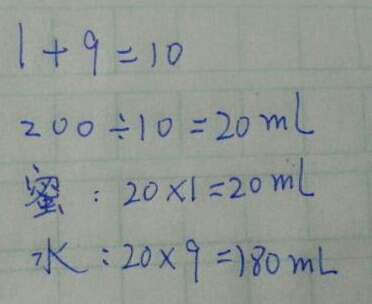 1+9=10
200÷10=20mL
蜜:20×1=20mL
水:20×9=180mL